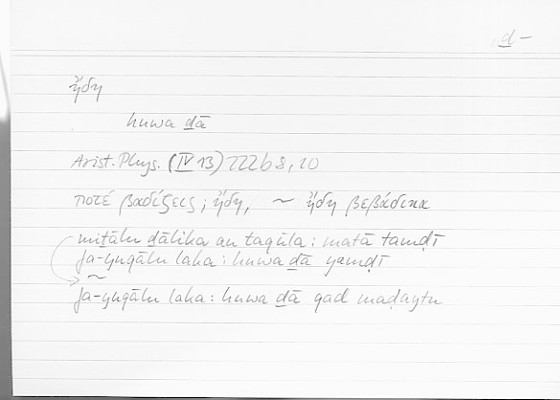 d-
ἤδη
huwa ḏā
Arist. Phys. (IV 13) 222b 8, 10
ποτέ βαδίζεις; ἤδη, ~ ἤδη βεβάδικα
miṯālu ḏālika an taqūla: matā tamḍī
fa-yuqālu laka: huwa ḏā yamḍī
~
fa-yuqālu laka: huwa ḏā qad maḍaytu